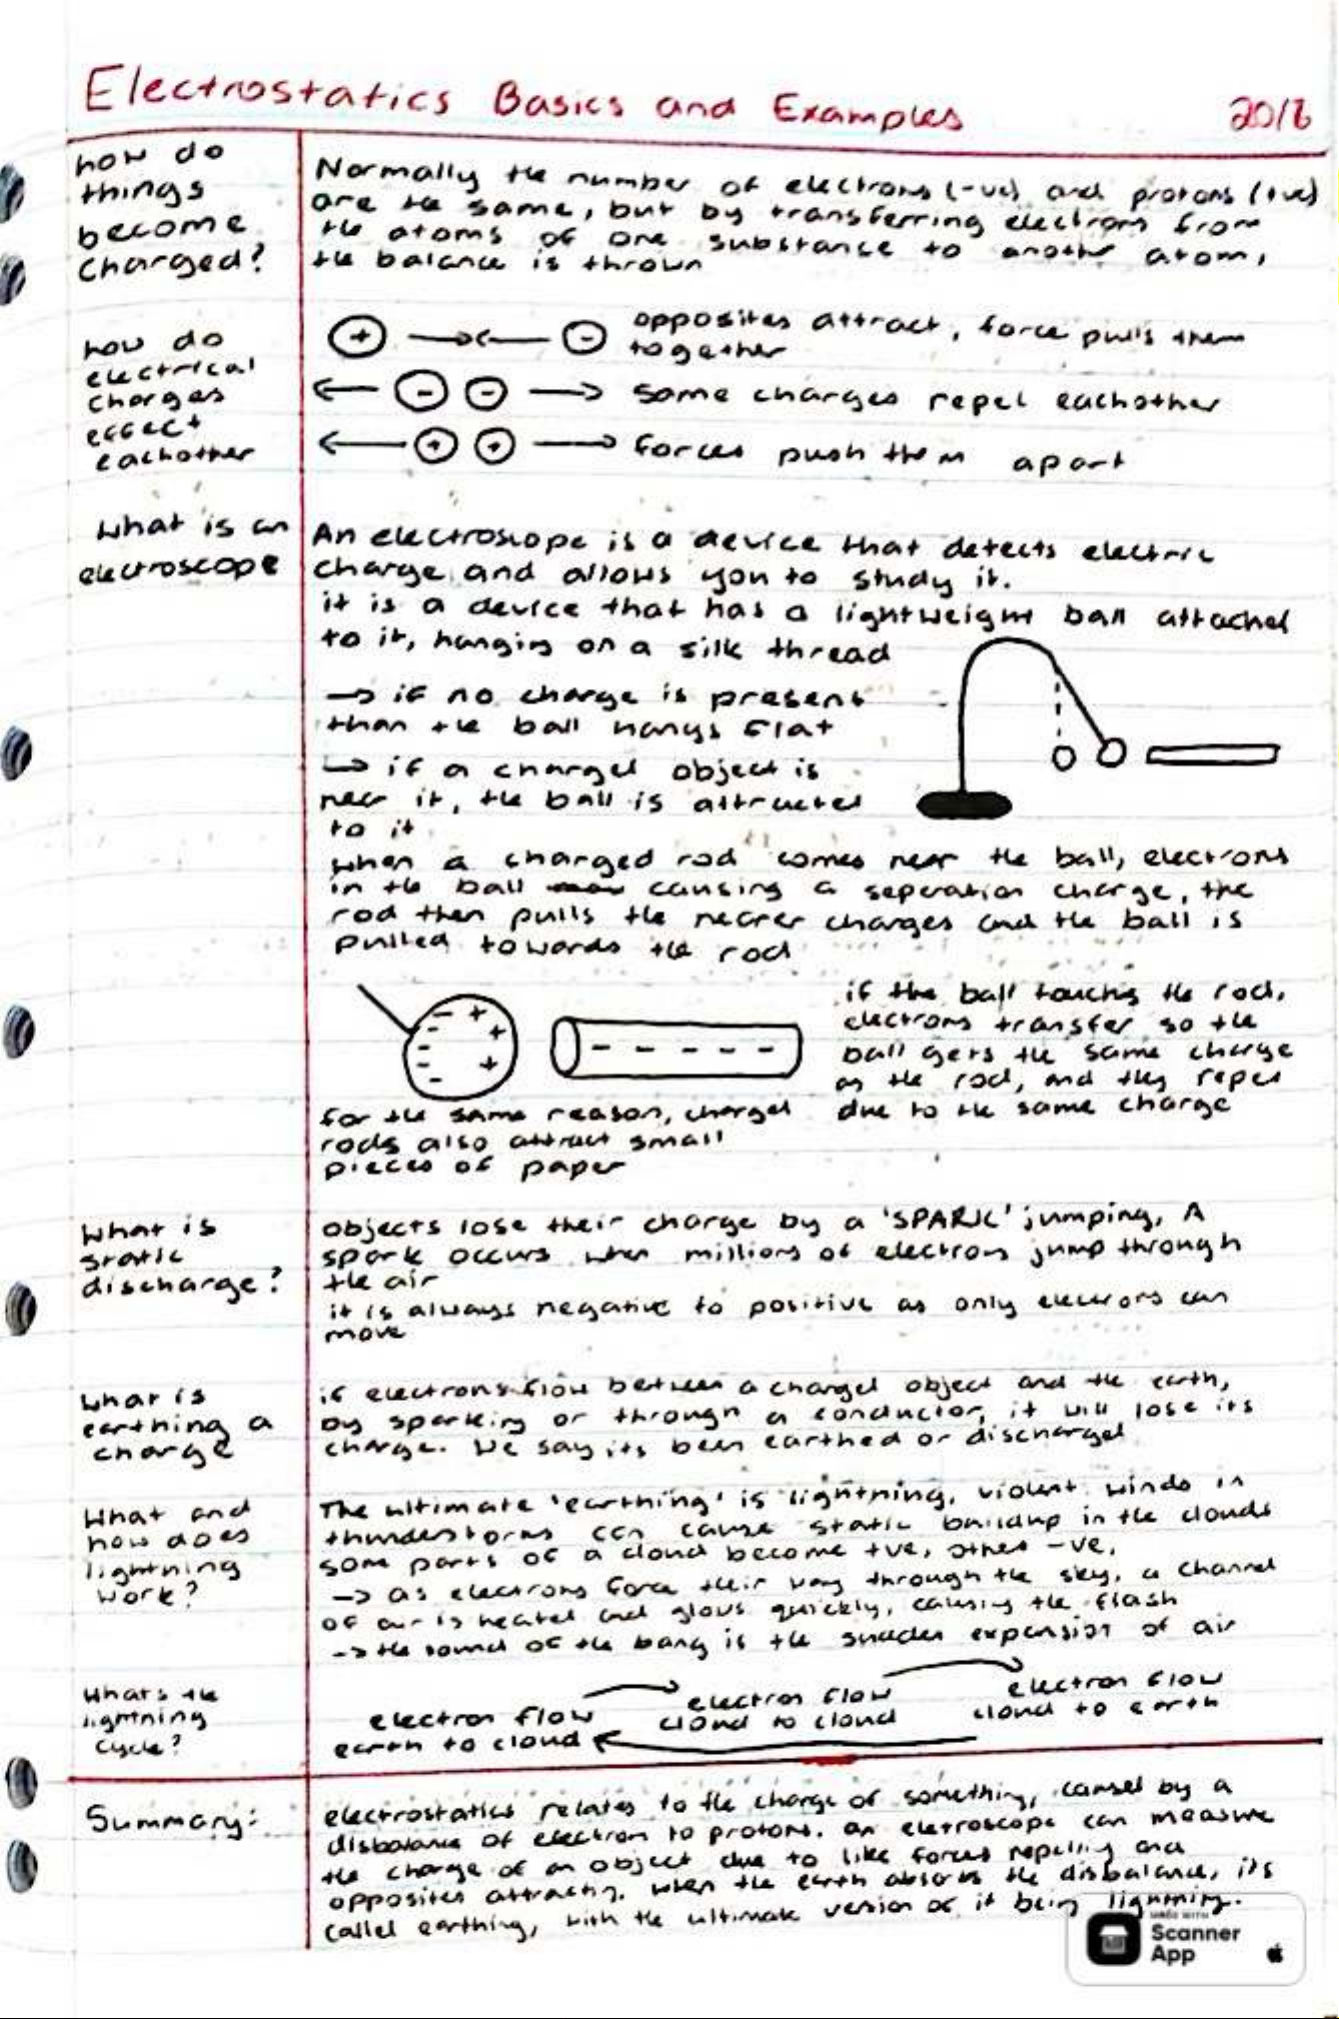 Electrostatics Basics and Examples 20/6
how do
things
become
charged?
Normally the number of electrons (-ve) and protons (+ve)
are the same, but by transferring electrons from
the atoms of one substance to another atom,
the balance is thrown
how do
electrical
charges
effect
eachother
+ - opposites attract, force pulls them
together
- - same charges repel eachother
+ + forces push them apart
What is an
electroscope
An electroscope is a device that detects electric
charge and allows you to study it.
it is a device that has a lightweight ball attached
to it, hanging on a silk thread
→ if no charge is present
than the ball hangs flat
↳ if a charged object is
near it, the ball is attracted
to it
when a charged rod comes near the ball, electrons
in the ball causing a seperation charge, the
rod then pulls the nearer charges and the ball is
pulled towards the rod
- + - + - + - -
- - - - -
if the ball touches the rod,
electrons transfer so the
ball gets the same charge
as the rod, and they repel
due to the same charge
for the same reason, charged
rods also attract small
pieces of paper
What is
static
discharge?
objects lose their charge by a 'SPARK' jumping, A
spark occurs when millions of electrons jump through
the air
it is always negative to positive as only electrons can
move
What is
earthing a
charge
if electrons flow between a charged object and the earth,
by sparking or through a conductor, it will lose its
charge. We say its been earthed or discharged
What and
how does
lightning
work?
The ultimate 'earthing' is lightning, violent winds in
thunderstorms can cause static buildup in the clouds
some parts of a cloud become +ve, other -ve,
→ as electrons force their way through the sky, a channel
of air is heated and glows quickly, causing the flash
→ the sound of the bang is the sudden expansion of air
Whats the
lightning
cycle?
electron flow
earth to cloud
electron flow
cloud to cloud
electron flow
cloud to earth
Summary:
electrostatics relates to the charge of something, caused by a
disbalance of electron to protons. an eletroscope can measure
the charge of an object due to like forces repelling and
opposites attracting. when the earth absorbs the disbalance, its
called earthing, with the ultimate version of it being lightning.
MADE WITH
Scanner
App